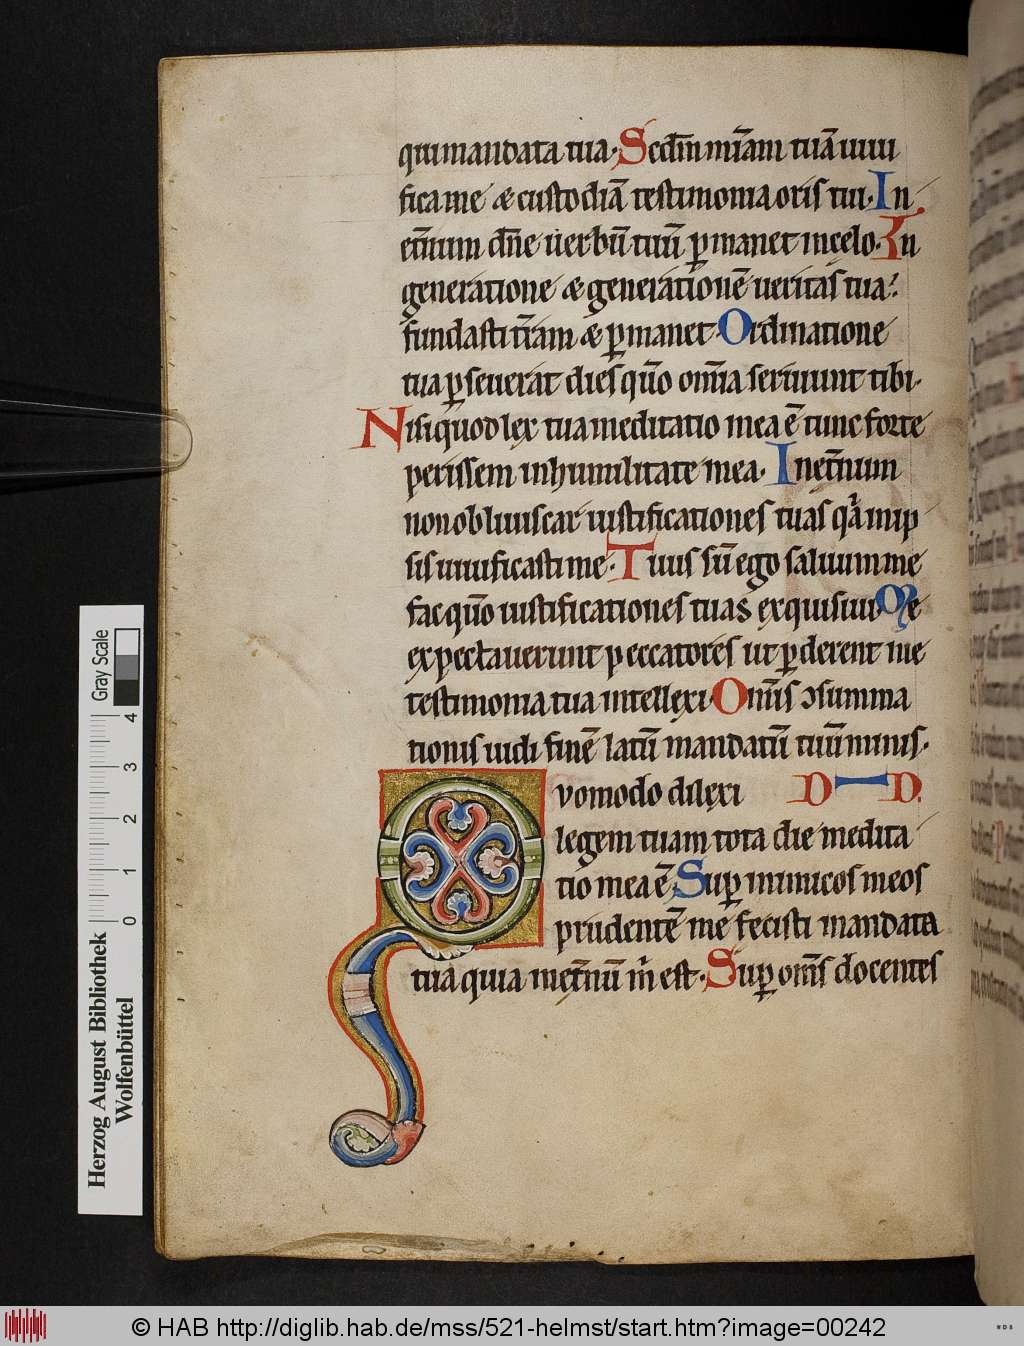 qui mandata tua. Scdm̄ mīam tuā uiui
fica me & custodiā testimonia oris tui. In
et̄num dn̄e uerbū tuū ꝑmanet in celo. In
generatione & generationē ueritas tua.
fundasti t̄ram & ꝑmanet. Ordinatione
tua ꝑseuerat dies qm̄o omīa seruiunt tibi.
Nisi quod lex tua meditatio mea ē tunc forte
perissem in humilitate mea. In et̄num
non obliuiscar iustificationes tuas q̄a in ip
sis uiuificasti me. Tuus sū ego saluum me
fac qūo iustificationes tuas exquisiui. Me
expectauerunt peccatores ut ꝑderent me
testimonia tua intellexi. Om̄is ɔsumma
tionis uidi finē latū mandatū tuū nimis.
Quomodo dilexi D D.
legem tuam tota die medita
tio mea ē. Suꝑ inimicos meos
prudentē me fecisti mandata
tua quia in et̄nū m̄ est. Suꝑ om̄s docentes
Gray Scale
0 1 2 3 4
Herzog August Bibliothek
Wolfenbüttel
© HAB http://diglib.hab.de/mss/521-helmst/start.htm?image=00242